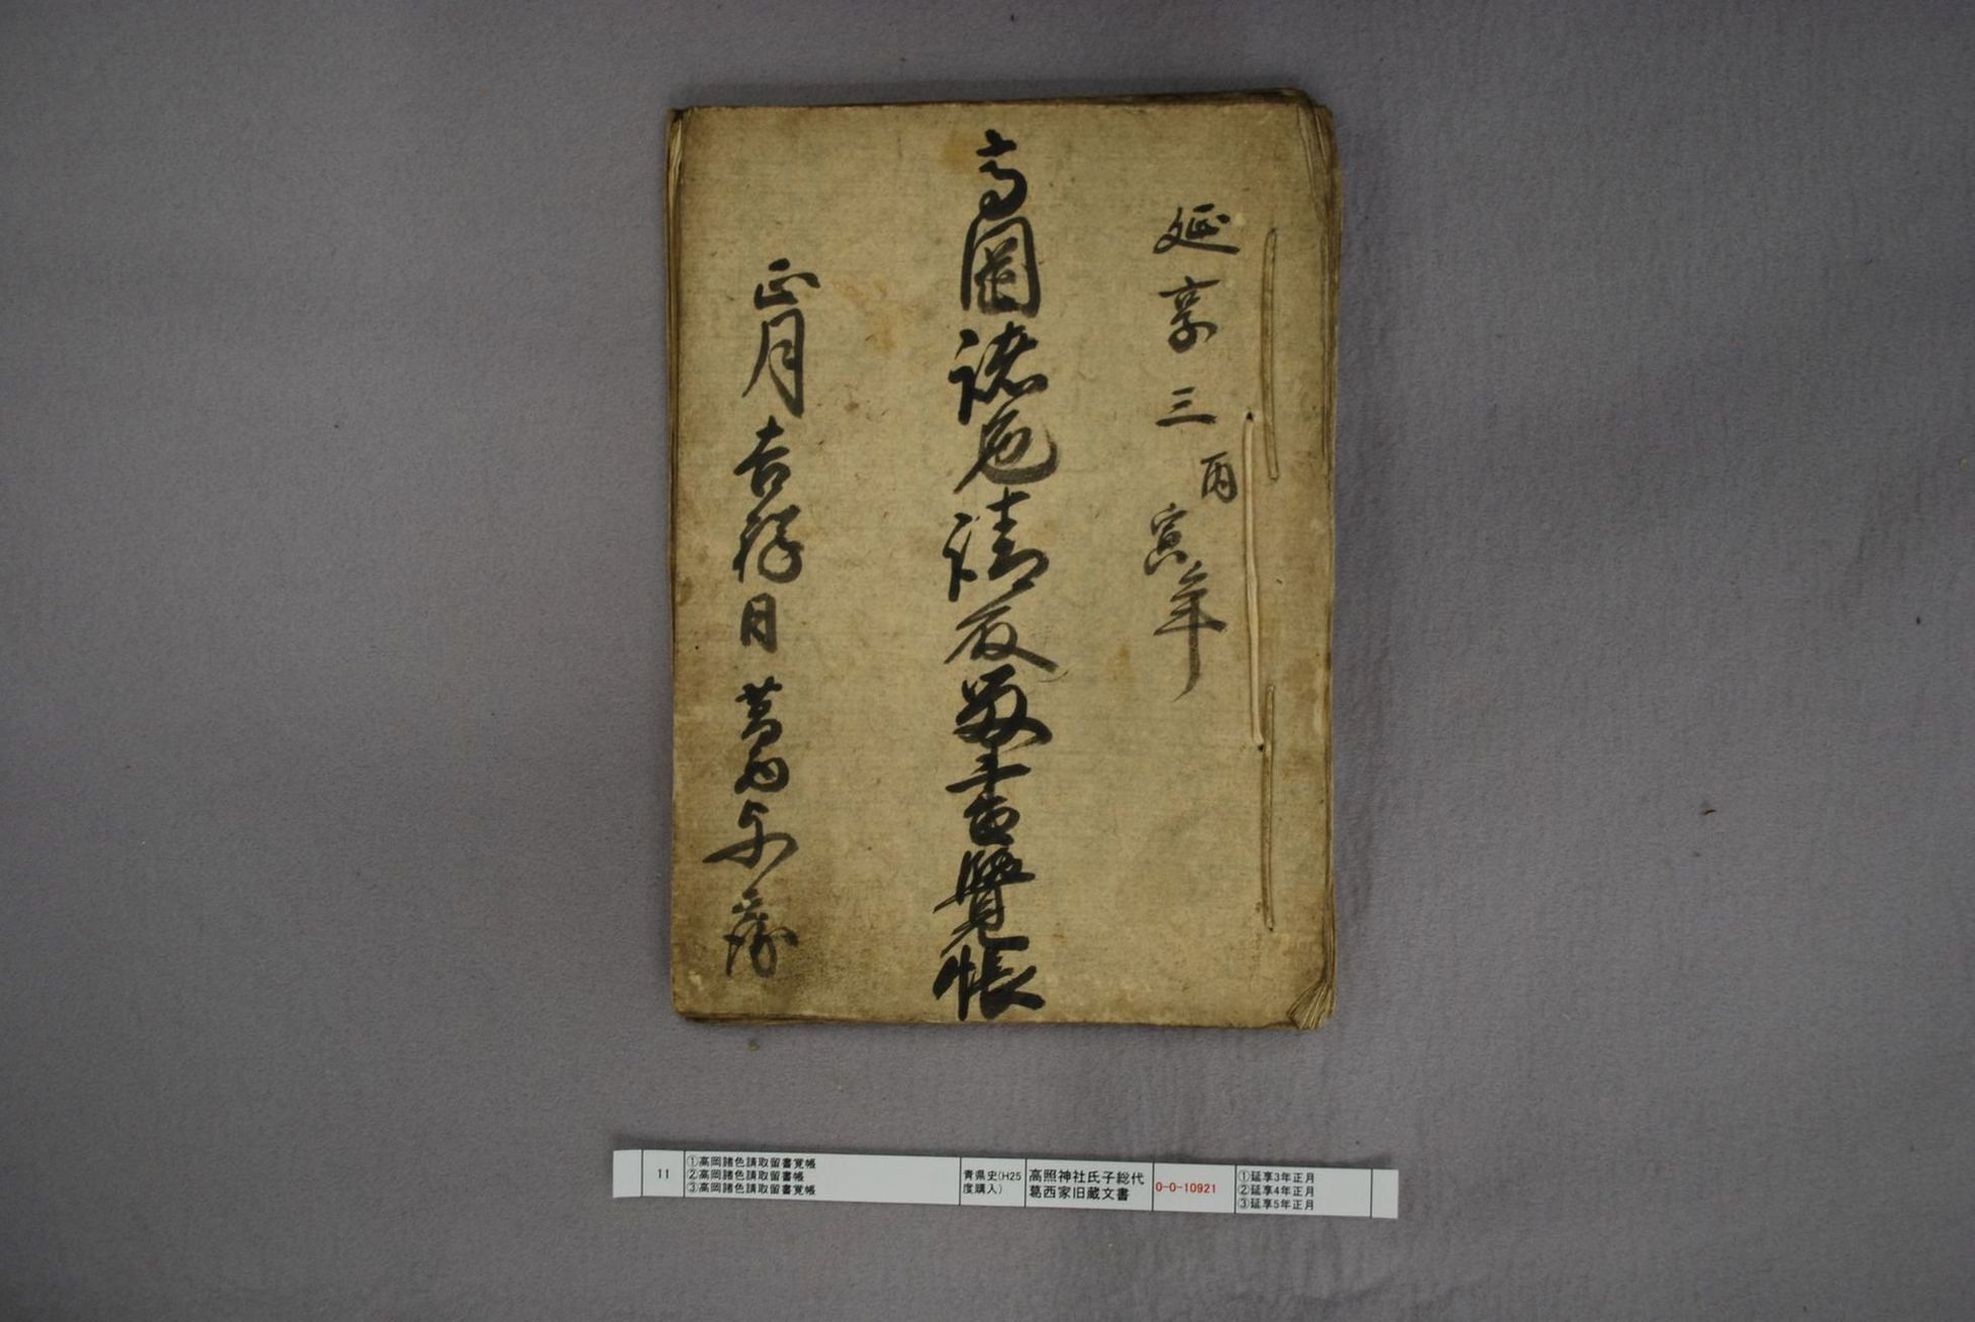 延享三丙寅年
高岡諸色請取留書覺帳
正月吉祥日 葛西
11
①高岡諸色請取留書覚帳
②高岡諸色請取留書帳
③高岡諸色請取留書覚帳
青県史(H25
度購入)
高照神社氏子総代
葛西家旧蔵文書
0-0-10921
①延享3年正月
②延享4年正月
③延享5年正月